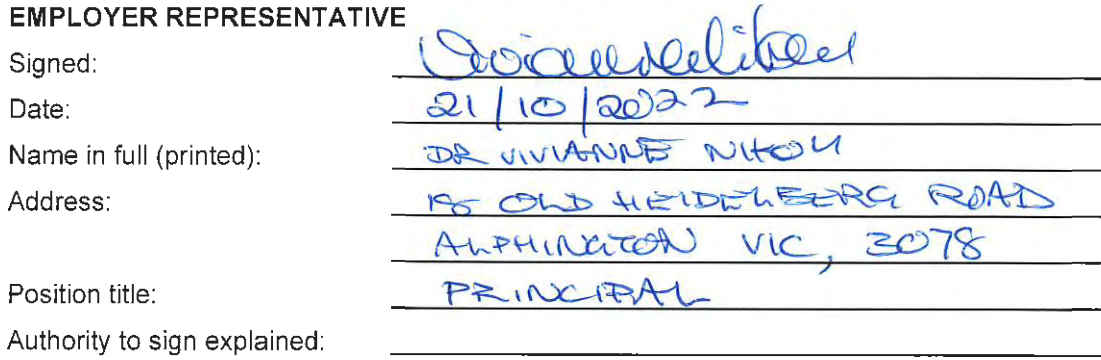 EMPLOYER REPRESENTATIVE
Signed:
Date: 21/10/2022
Name in full (printed): DR VIVIANNE NIKOU
Address: 18 OLD HEIDELBERG ROAD
ALPHINGTON VIC, 3078
Position title: PRINCIPAL
Authority to sign explained: